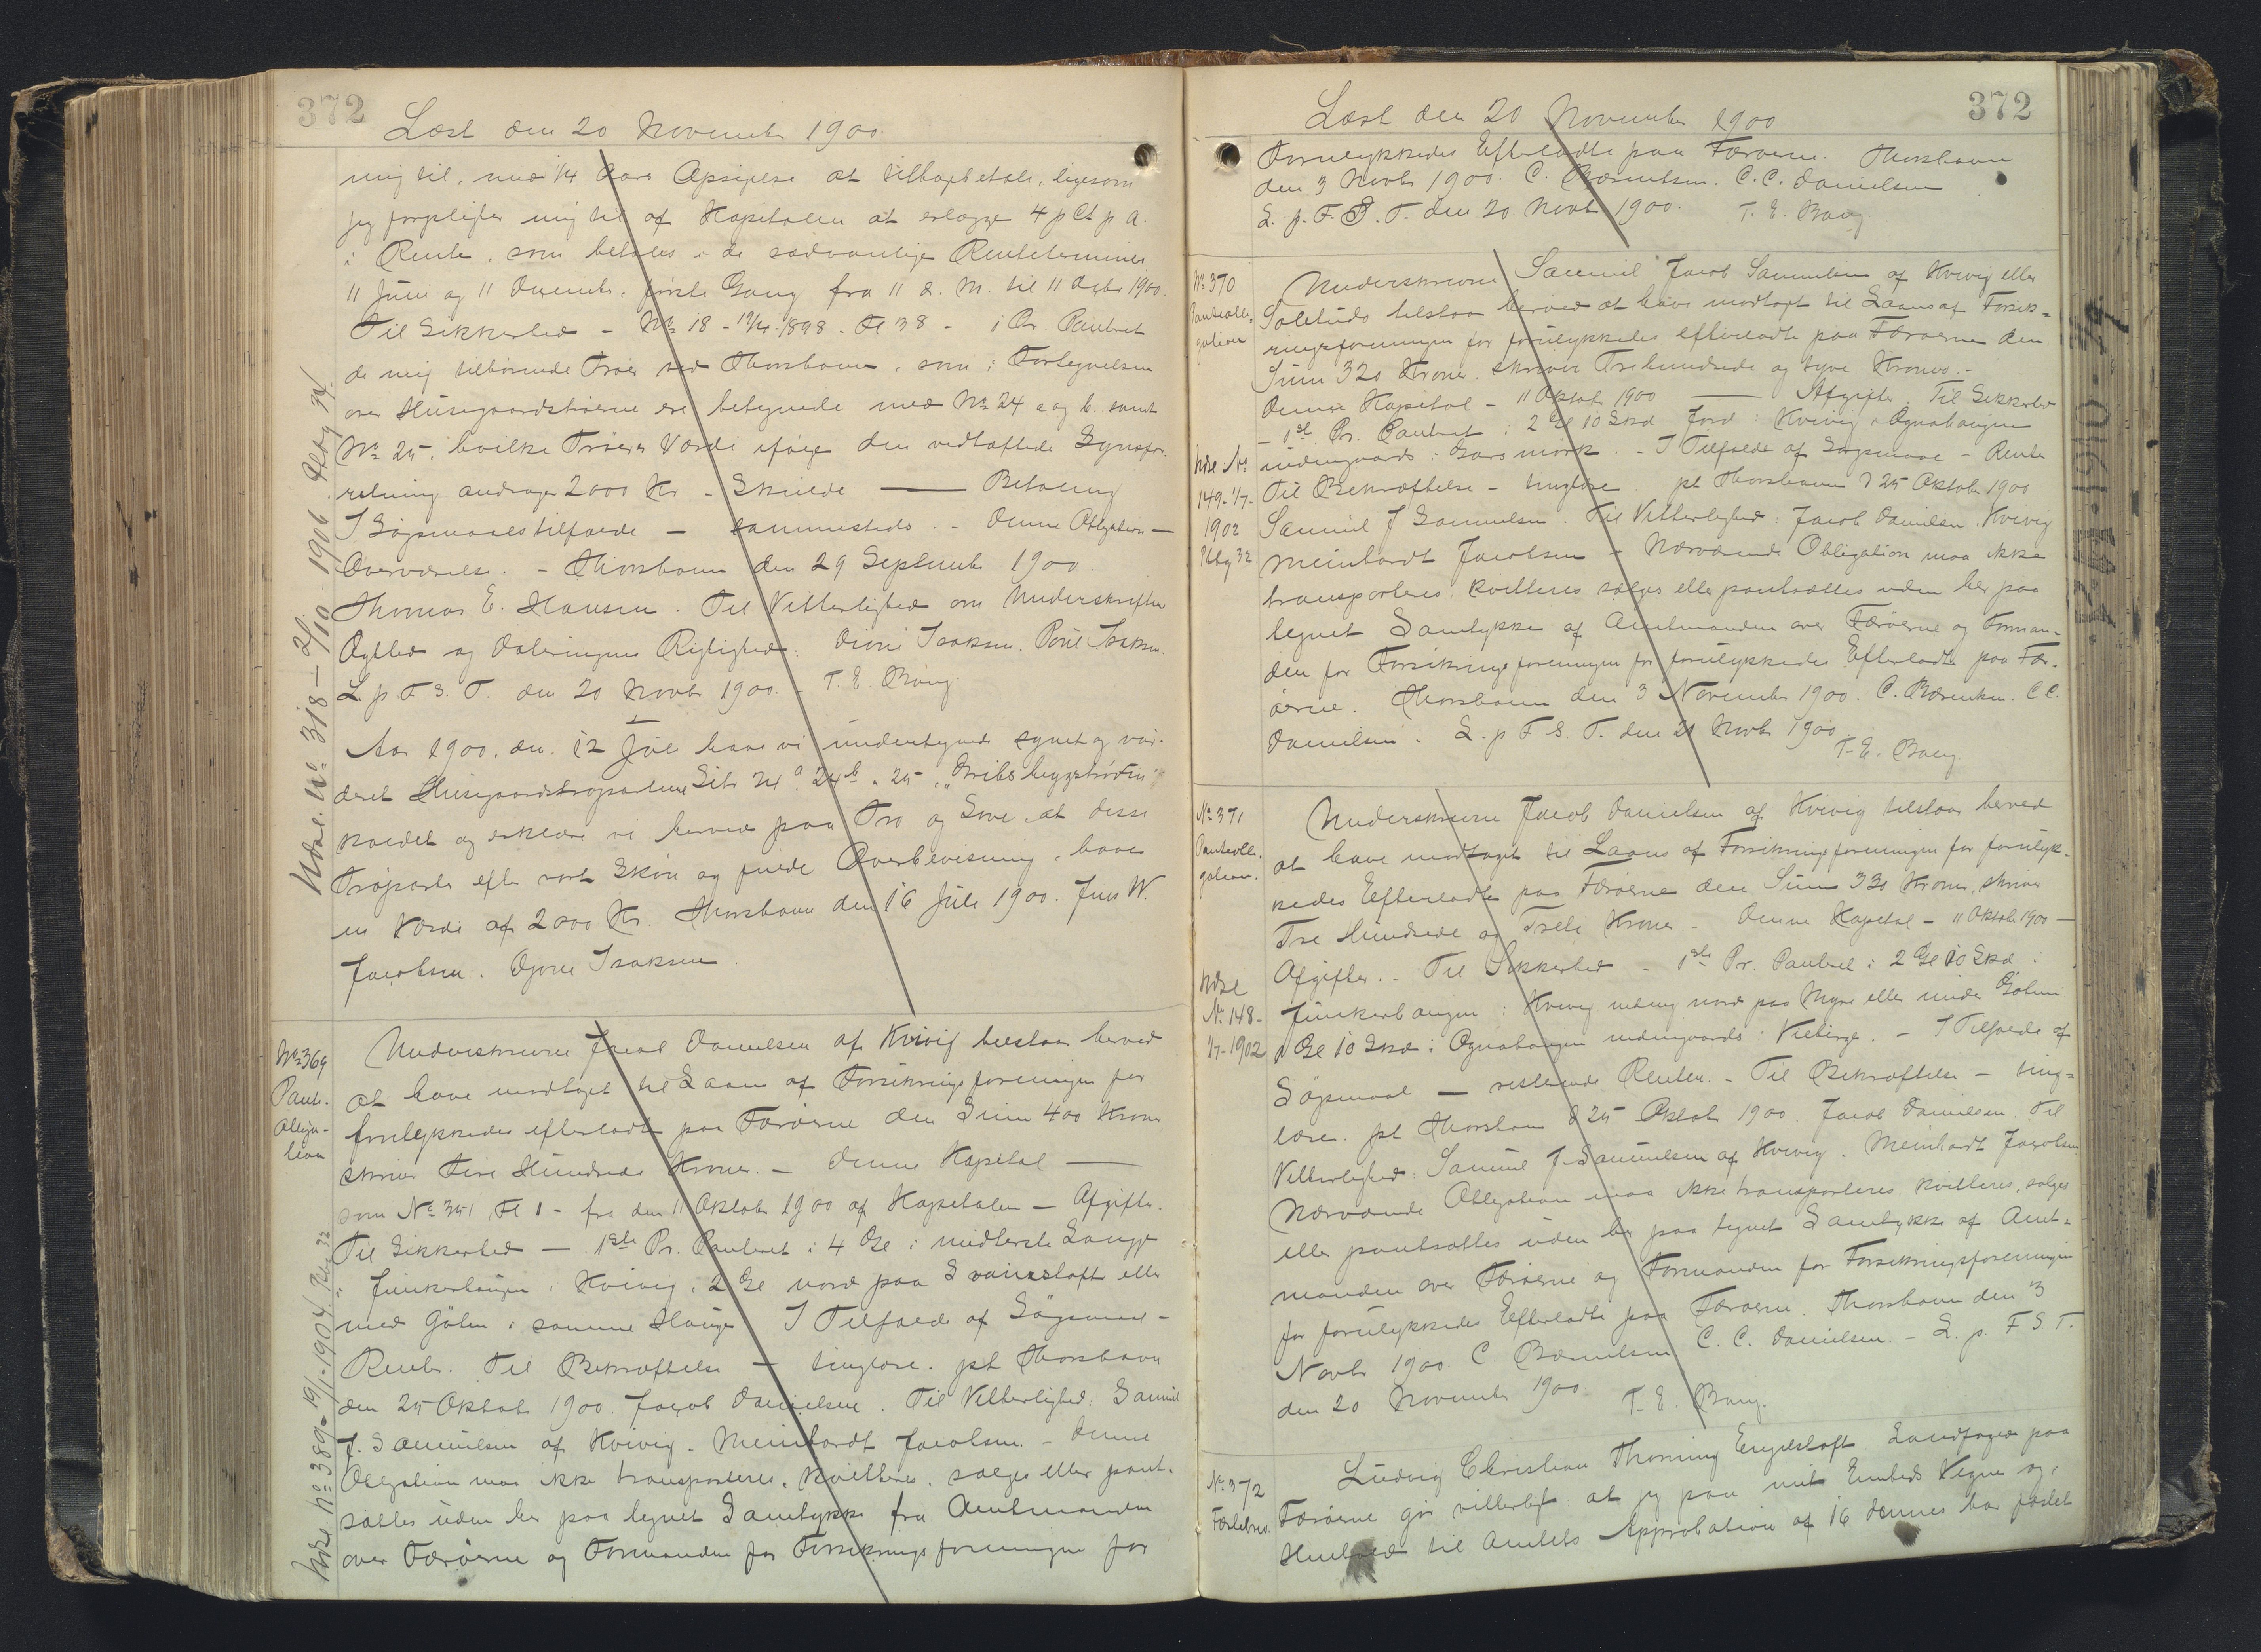 372
Læst den 20 November 1900
mig til, med 1/4 Aars Opsigelse at tilbagebetale, ligesom
jeg forpligter mig til af Kapitalen at erlægge 4 p Ct p. a.
i Rente, som betales i de sædvanlige Renteterminer
11 Juni og 11 December, første Gang fra 11 d. M. til 11 Decbr 1900.
Til Sikkerhed - No 18 - 1898 - Fl 38 - 1 Pr. Panteret
de mig tilhørende Trøer ved Thorshavn, som i Fortegnelsen
over Huusgaardstrøerne ere betegnede med No 24 a og b. samt
No 25, hvilke Trøers Værdi ifølge den vedhæftede Synsfor-
retning andrager 2000 Kr. - Skulde — Betaling
I Søgsmaalstilfælde - sammesteds. - Denne Obligation -
Overværelse. - Thorshavn den 29 September 1900.
Thomas E. Hansen. Til Vitterlighed om Underskriftens
Ægthed og Dateringens Rigtighed: Dioni Isaksen. Poul Isaksen.
L. p. F. S. T. den 20 Novbr 1900. - T. E. Bang.
Aar 1900, den 12 Juli have vi undertegnede synet og vur-
deret Huusgaardstrøparterne Litr 24a, 24b, 25
kaldet og erklære vi herved paa Tro og Love, at disse
Trøparter efter vort Skøn og fulde Overbevisning, have
en Værdi af 2000 Kr. Thorshavn den 16 Juli 1900. Jens W.
Jacobsen. Djoni Isaksen.
Udsl. No 318 - 2/10 1906
No 369
Pant-
obliga-
tion
Underskrevne Jacob Danielsen af Kvivig tilstaar herved
at have modtaget til Laans af Forsikringsforeningen for
forulykkedes efterladte paa Færøerne den Sum 400 Kroner
skriver Fire Hundrede Kroner. - Denne Kapital —
som No 351 Fl 1 - fra den 11 Oktober 1900 af Kapitalen - Afgifter.
Til Sikkerhed - 1ste Pr. Panteret i 4 Gl i midterste
i Junkerhaugen i Kvivig, 2 Gl nord paa eller
med Gølen i samme Hauge. I Tilfælde af Søgsmaal -
Renter. Til Bekræftelse - tinglæse. pt Thorshavn
den 25 Oktob 1900. Jacob Danielsen. Til Vitterlighed: Samuel
J. Samuelsen af Kvivig. Meinhardt Jacobsen - Denne
Obligation maa ikke transporteres, kvitteres, sælges eller pant-
sættes uden her paa tegnet Samtykke fra Amtmanden
over Færøerne og Formanden for Forsikringsforeningen for
Udsl. No 389 - 19/1 - 1904.
372
Læst den 20 November 1900
Forulykkedes Efterladte paa Færøerne. Thorshavn
den 3 Novbr 1900. C. Bærentsen. C. C. Danielsen
L. p. F. S. T. den 20 Novbr 1900. T. E. Bang
No 370
Panteobli-
gation
Underskrevne Samuil Jacob Samuelsen af Kvivig eller
tilstaar herved at have modtaget til Laans af Forsik-
ringsforeningen for forulykkedes efterladte paa Færøerne den
Sum 320 Kroner, skriver Trehundrede og tyve Kroner. -
Denne Kapital - 11 Oktob 1900 — Afgifter. Til Sikkerhed
- 1ste Pr. Panteret i 2 Gl 10 Skd Jord i Kvivig i Ognahaugen
indengaards i . - I Tilfælde af Søgsmaal - Renter
Til Bekræftelse - tinglæse. pt Thorshavn d 25 Oktober 1900
Samuil J Samuelsen. Til Vitterlighed: Jacob Danielsen, Kvivig
Meinhardt Jacobsen - Nærværende Obligation maa ikke
transporteres, kvitteres sælges eller pantsættes uden her paa
tegnet Samtykke af Amtmanden over Færøerne og Forman-
den for Forsikringsforeningen for forulykkedes Efterladte paa Fær-
øerne. Thorshavn den 3 November 1900. C. Bærentsen. C C.
Danielsen. L. p F S. T. den 20 Novb 1900
T. E. Bang
Udsl No
149 - 1/7 -
1902
No 371
Panteobli-
gation.
Underskrevne Jacob Danielsen af Kvivig tilstaar herved
at have modtaget til Laans af Forsikringsforeningen for forulyk-
kedes Efterladte paa Færøerne den Sum 330 Kroner, skriver
Tre Hundrede og Treti Kroner - Denne Kapital - 11 Oktob 1900 -
Afgifter. - Til Sikkerhed - 1ste Pr. Panteret i 2 Gl 10 Skd i
Junkerhaugen i Kvivig indeng nord paa Myre eller under Gølen
Gl 10 Skd i Ognahaugen indengaards . - I Tilfælde af
Søgsmaal - resterende Renter. - Til Bekræftelse - ting-
læse. pt Thorshavn d 25 Oktob 1900. Jacob Danielsen. Til
Vitterlighed: Samuel J. Samuelsen af Kvivig. Meinhardt Jacobsen
Nærværende Obligation maa ikke transporteres, kvitteres, sælges
eller pantsættes uden her paa tegnet Samtykke af Amt-
manden over Færøerne og Formanden for Forsikringsforeningen
for forulykkedes Efterladte paa Færøerne. Thorshavn den 3
Novbr 1900. C. Bærentsen C. C. Danielsen. - L. p. F S T.
den 20 November 1900 T. E. Bang.
Udsl
No 148 -
1/7 - 1902
No 372
Ludvig Christian Thorning Engelstoft Landfoged paa
Færøerne gør vitterligt: at jeg paa mit Embeds Vegne og i
Henhold til Amtets Approbation af 16 dennes har fæstet